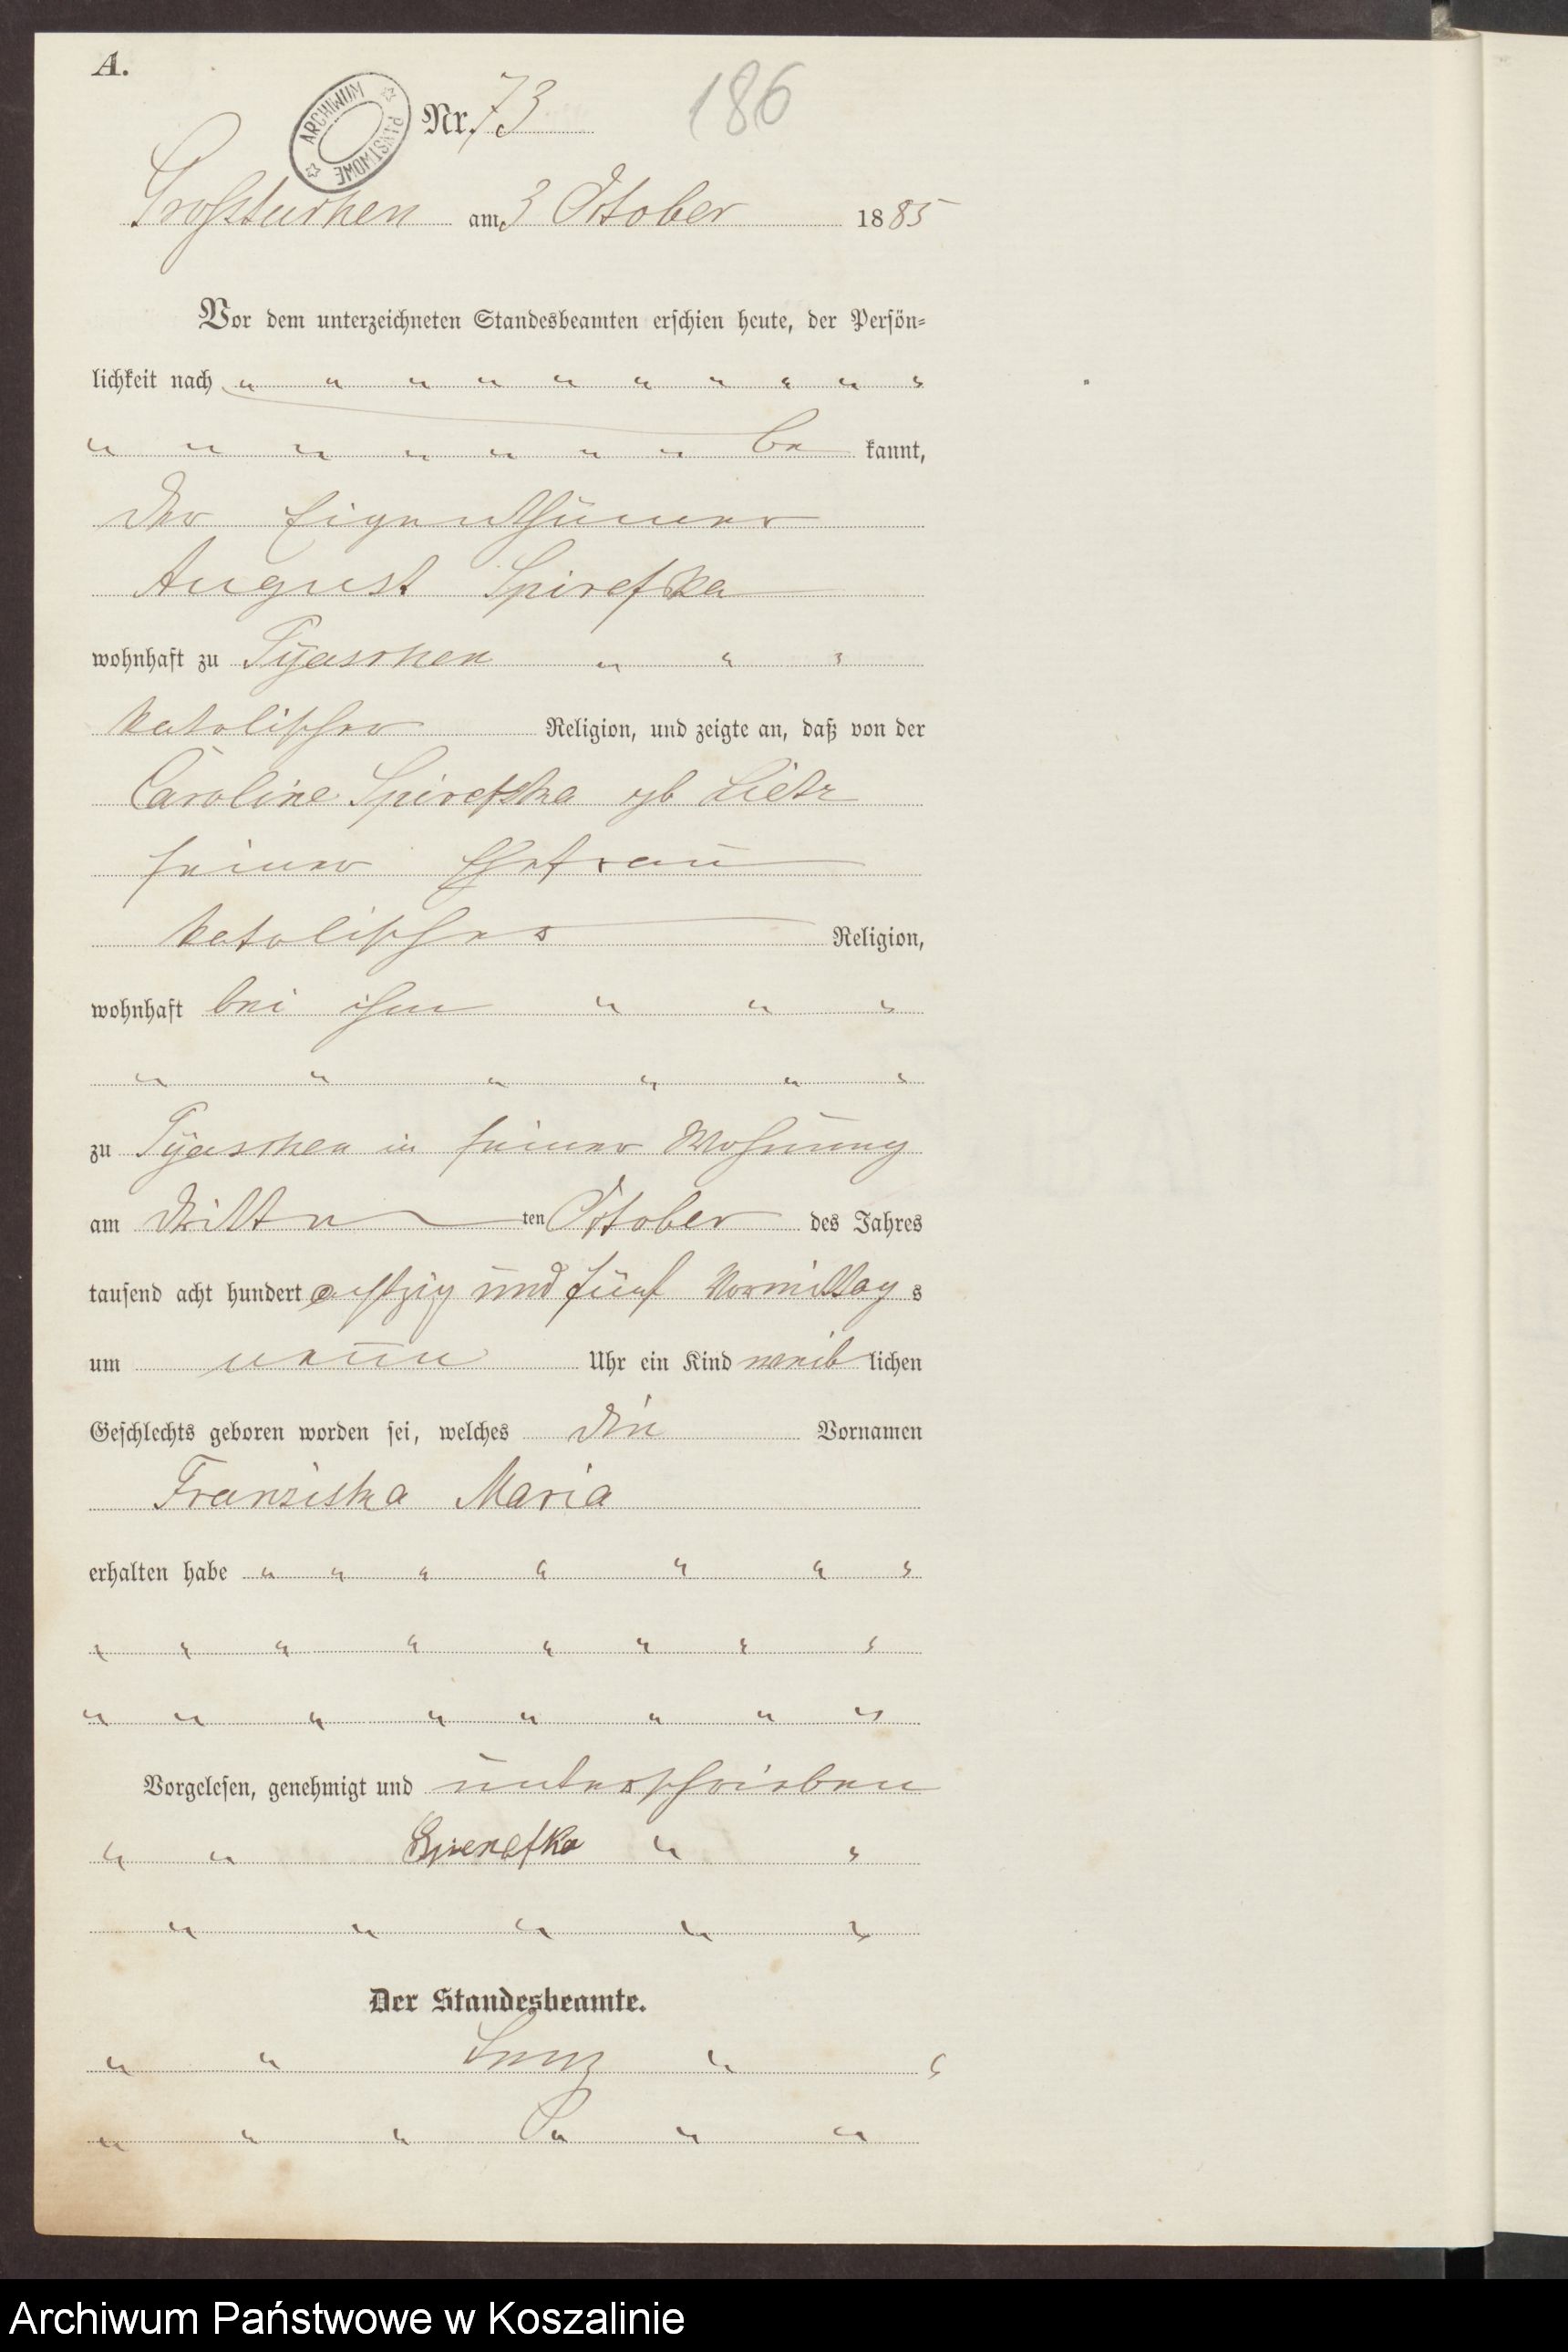 A.
ARCHIWUM PAŃSTWOWE
Nr. 73 186
Großtuchen am 3 October 1885
Vor dem unterzeichneten Standesbeamten erschien heute, der Persön-
lichkeit nach
be kannt,
der Eigenthümer
August Spirefska
wohnhaft zu
katolischer Religion, und zeigte an, daß von der
Caroline Spirefska gb Lietz
seiner Ehefrau
katolischer Religion,
wohnhaft bei ihm
zu in seiner Wohnung
am dritten ten October des Jahres
tausend acht hundert achtzig und fünf Vormittag s
um neun Uhr ein Kind weib lichen
Geschlechts geboren worden sei, welches die Vornamen
Franziska Maria
erhalten habe
Vorgelesen, genehmigt und unterschrieben
Der Standesbeamte.
Archiwum Państwowe w Koszalinie